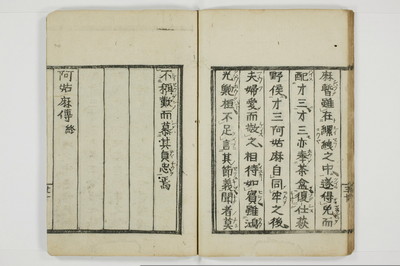 麻暫雖在縲絏之中遂得免而
配才三才三亦奉茶盒復仕荻
野侯才三阿姑麻自同牢之後
夫婦愛而敬之相待如賓雖鴻
光鮑桓不足言其節義聞者莫
不稱歎而慕其貞忠焉
阿姑麻傳終